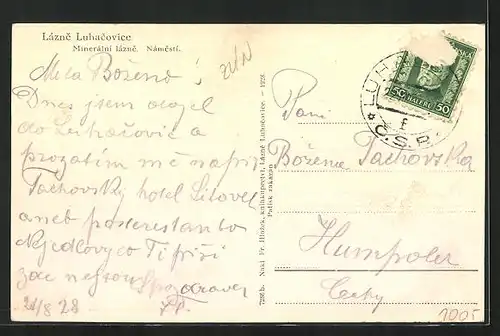 Lázně Luhačovice
Minerální lázně. Náměstí.
Milá Boženo!
Dnes jsem dojel
do Luhačovic a
prozatím mě napiš
Tachovský hotel Litovel
aneb posterestanto
Nejedlovy co Ti
zdraví
21/8 28
7236b. Nakl. Fr. Hložek, knihkupectví, Lázně Luhačovice - 1928
Patisk zakázán
LUH
Č.S.R.
50 HALÉŘŮ 50
Paní
Božena Tachovska
Humpolec
Čechy
100